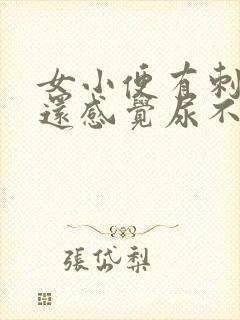 女小便有刺
還感覺尿不
張岱梨